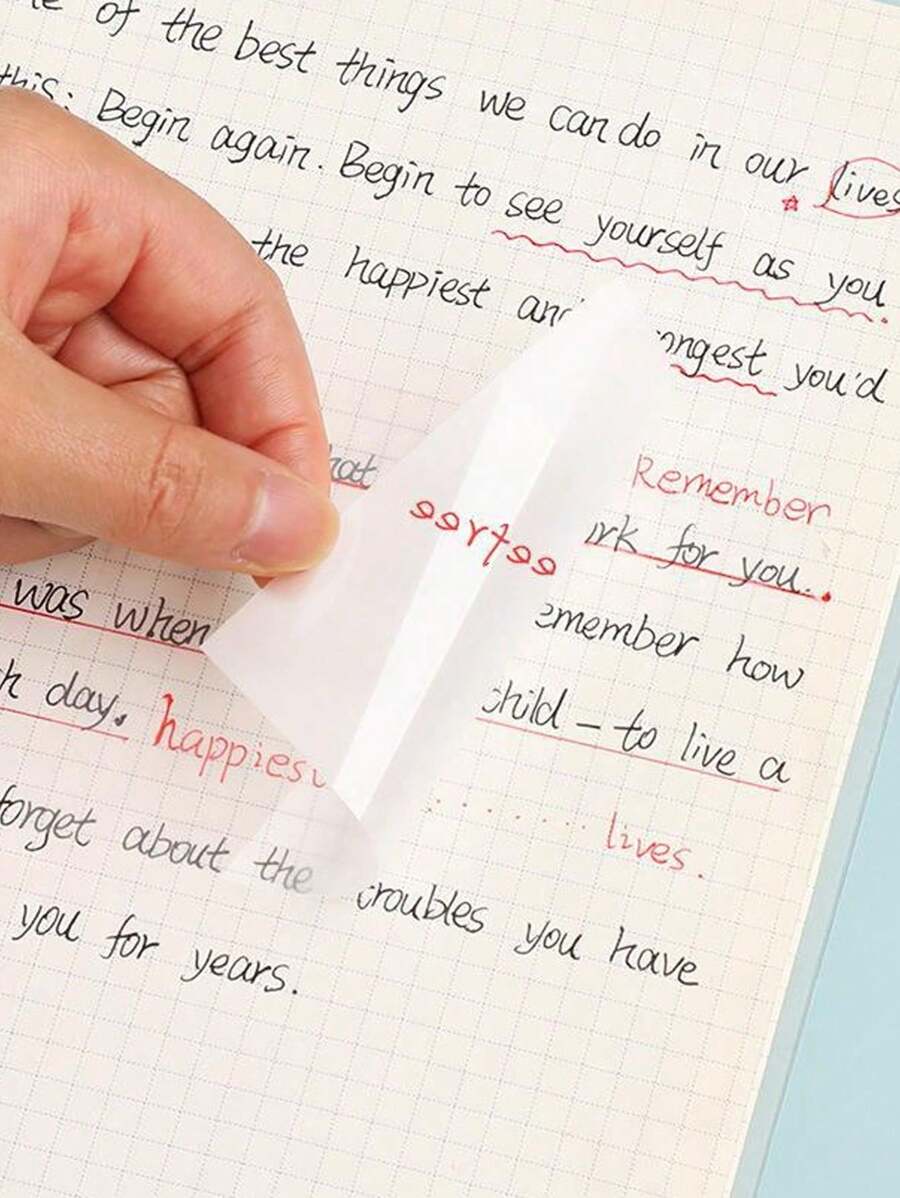 of the best things we can do in our lives
this: Begin again. Begin to see yourself as you
the happiest and you'd
Remember
for you..
was when how
day. to live a
happiest
lives.
forget about the troubles you have
you for years.